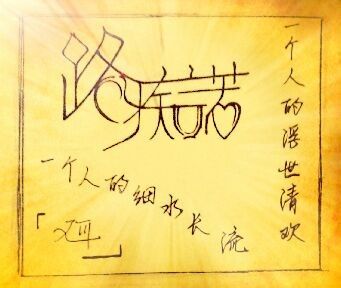 路疾諾
一个人的浮世清欢
一个人的细水长流